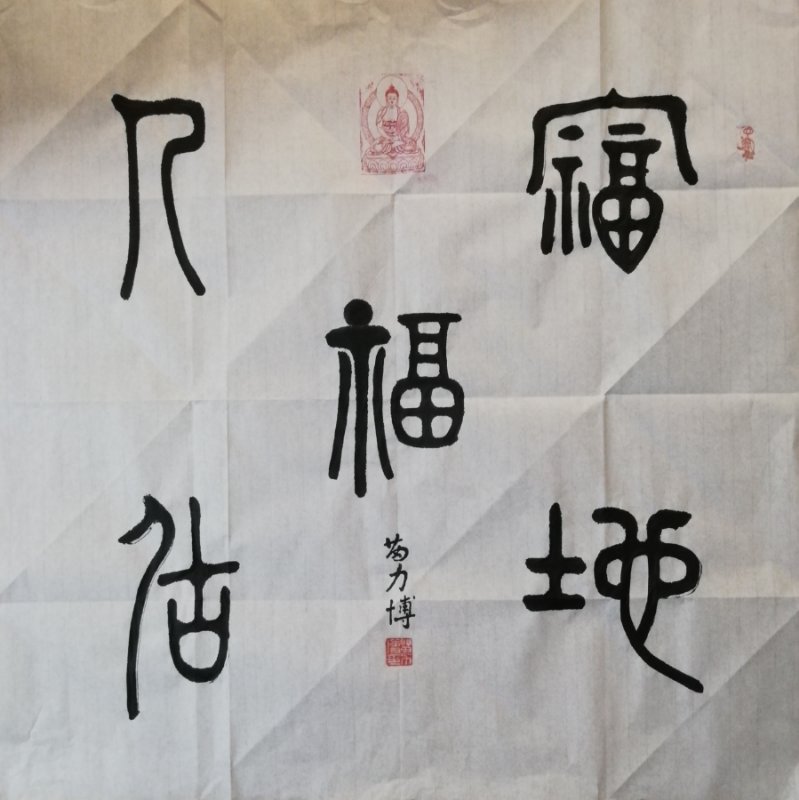 福地
福
人居
苗力博